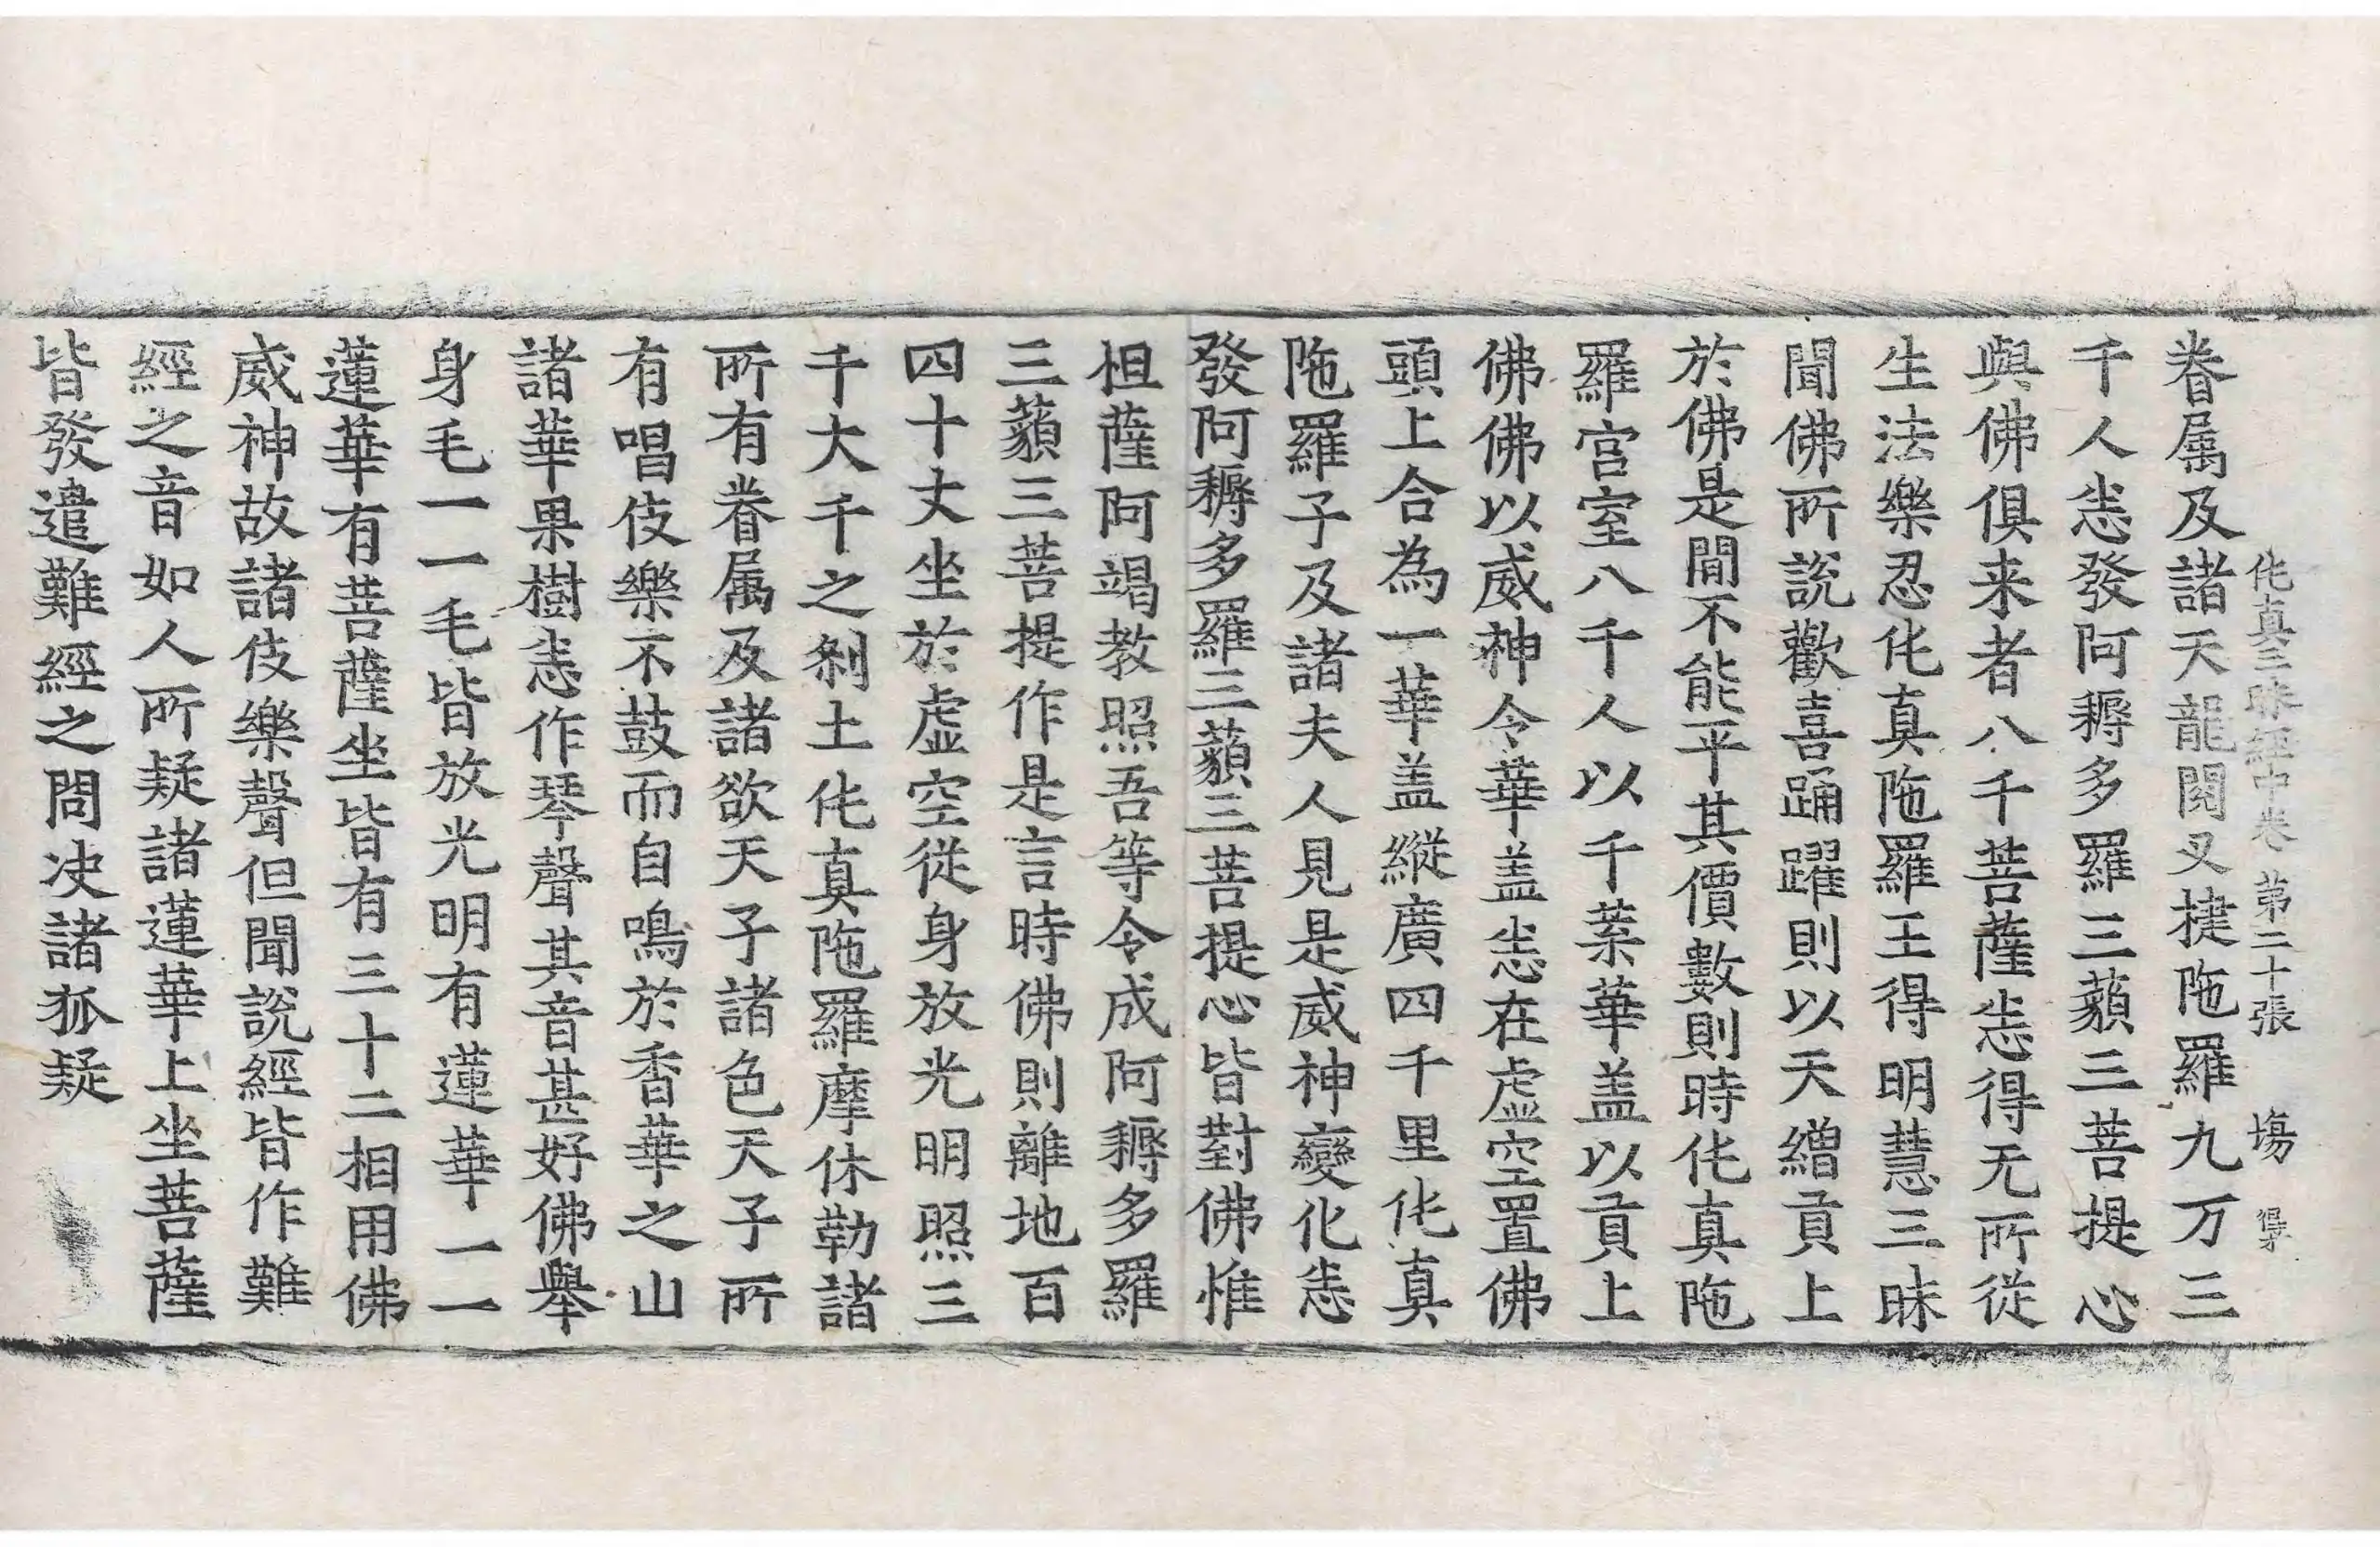 伅真三昧經中卷 第二十張 場 得
眷属及諸天龍閱叉揵陁羅九万三
千人恙發阿耨多羅三藐三菩提心
與佛俱来者八千菩薩恙得无所從
生法樂忍伅真陁羅王得明慧三昧
聞佛所說歡喜踊躍則以天繒貢上
於佛是間不能平其價數則時伅真陁
羅宮室八千人以千葉華盖以貢上
佛佛以威神令華盖恙在虛空置佛
頭上合為一華盖縱廣四千里伅真
陁羅子及諸夫人見是威神變化恙
發阿耨多羅三藐三菩提心皆對佛惟
怛薩阿竭教照吾等令成阿耨多羅
三藐三菩提作是言時佛則離地百
四十丈坐於虛空從身放光明照三
千大千之剎土伅真陁羅摩休勒諸
所有眷属及諸欲天子諸色天子所
有唱伎樂不鼓而自鳴於香華之山
諸華果樹恙作琴聲其音甚好佛舉
身毛一一毛皆放光明有蓮華一一
蓮華有菩薩坐皆有三十二相用佛
威神故諸伎樂聲但聞說經皆作難
經之音如人所疑諸蓮華上坐菩薩
皆發遣難經之問决諸狐疑